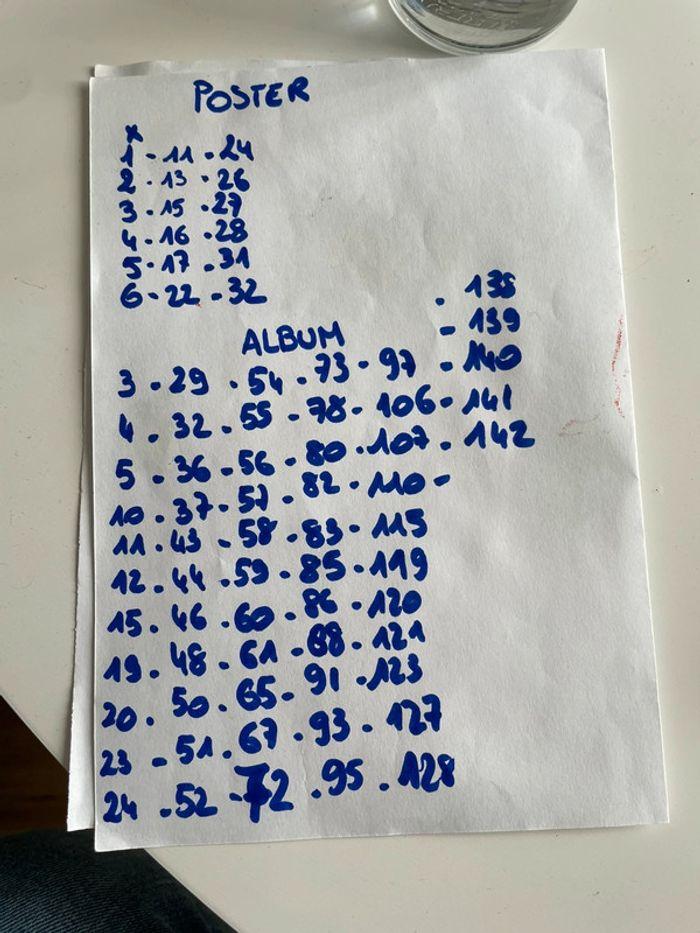 POSTER
x
1 - 11 - 24
2 - 13 - 26
3 - 15 - 27
4 - 16 - 28
5 - 17 - 31
6 - 22 - 32
ALBUM
- 138
- 139
3 - 29 - 54 - 73 - 97 - 140
4 - 32 - 55 - 78 - 106 - 141
5 - 36 - 56 - 80 - 107 - 142
10 - 37 - 57 - 82 - 110 -
11 - 43 - 58 - 83 - 115
12 - 44 - 59 - 85 - 119
15 - 46 - 60 - 86 - 120
19 - 48 - 61 - 88 - 121
20 - 50 - 65 - 91 - 123
23 - 51 - 67 - 93 - 127
24 - 52 - 72 - 95 - 128